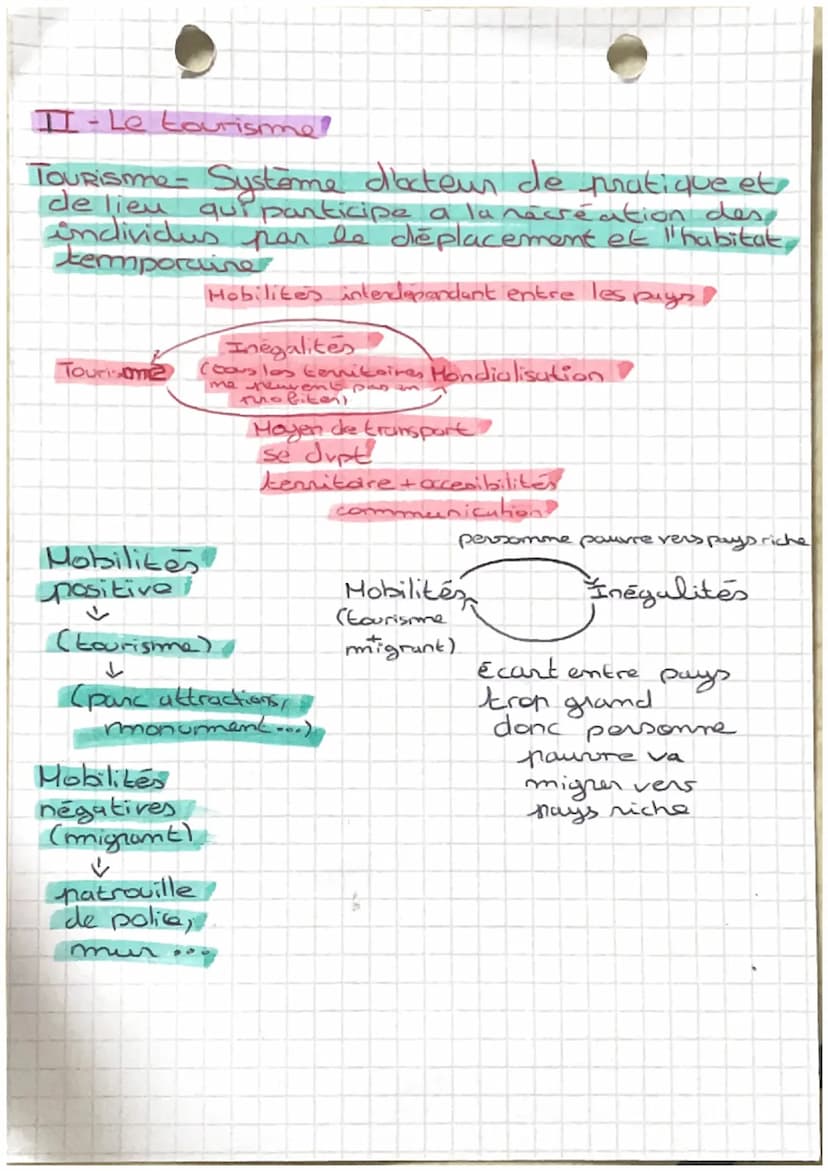 II - Le tourisme
TOURISme = Système d'acteur de pratique et
de lieu qui participe a la récréation des
individus par le déplacement et l'habitat
temmporaire
Mobilités interdépendant entre les pays
Inégalités
Tourisme (tous les territoires Mondialisution
ne peuvent pas en
profiter)
Moyen de transport
se dvpt
territoire + accesibilités
communication
personne pauvre vers pays riche
Mobilités
positive
Mobilités Inégalités
↓
(tourisme
(tourisme)
+
migrant)
↓
Ecart entre pays
(parc attractions,
trop grand
monument ...)
donc personne
pauvre va
Mobilités
migrer vers
négatives
pays riche
(migrant)
↓
patrouille
de police,
mur ...